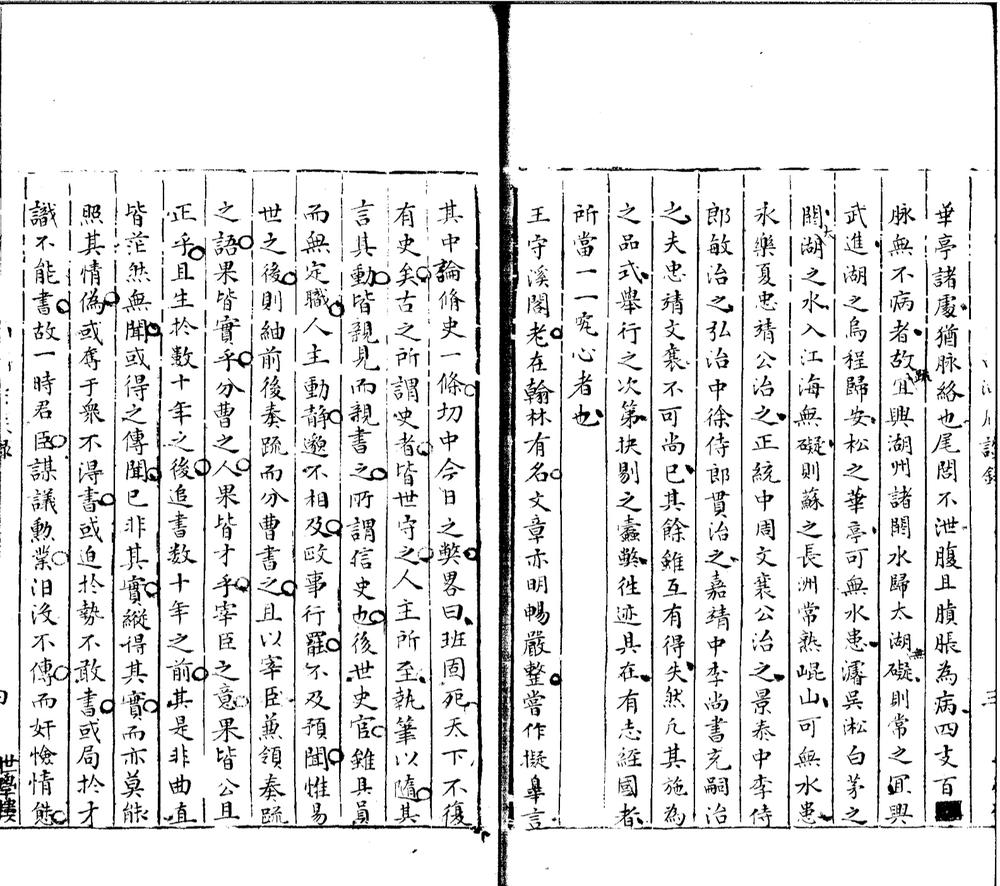 華亭諸處猶脉絡也尾閭不泄腹且膹脹為病四支百
脉無不病者故疏宜興湖州諸閘水歸太湖無礙則常之宜興
武進湖之烏程歸安松之華亭可無水患濬吳淞白茅之
閘太湖之水入江海無礙則蘇之長洲常熟崐山可無水患
永樂夏忠靖公治之正統中周文襄公治之景泰中李侍
郎敏治之弘治中徐侍郎貫治之嘉靖中李尚書充嗣治
之夫忠靖文襄不可尚已其餘雖互有得失然凡其施為
之品式舉行之次第抉剔之蠹弊徃迹具在有志經國者
所當一一究心者也
王守溪閣老在翰林有名文章亦明暢嚴整當作擬辠言
其中論脩史一條切中今日之弊畧曰班固死天下不復
有史矣古之所謂史者皆世守之人主所至執筆以隨其
言其動皆親見而親書之所謂信史也後世史官雖具員
而無定職人主動靜邈不相及政事行罷不及預聞惟易
世之後則紬前後奏疏而分曹書之且以宰臣兼領奏疏
之語果皆實乎分曹之人果皆才乎宰臣之意果皆公且
正乎且生於數十年之後追書数十年之前其是非曲直
皆茫然無聞或得之傳聞已非其實縱得其實而亦莫能
照其情偽或奪于衆不得書或迫於勢不敢書或局於才
識不能書故一時君臣謀議勳業汩沒不傳而奸憸情態
世學樓